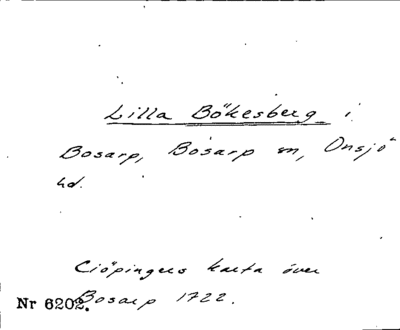 Lilla Bökesberg i
Bosarp, Bosarp sn, Onsjö
hd.
Ciöpingers karta över
Bosarp 1722.
Nr 6202.